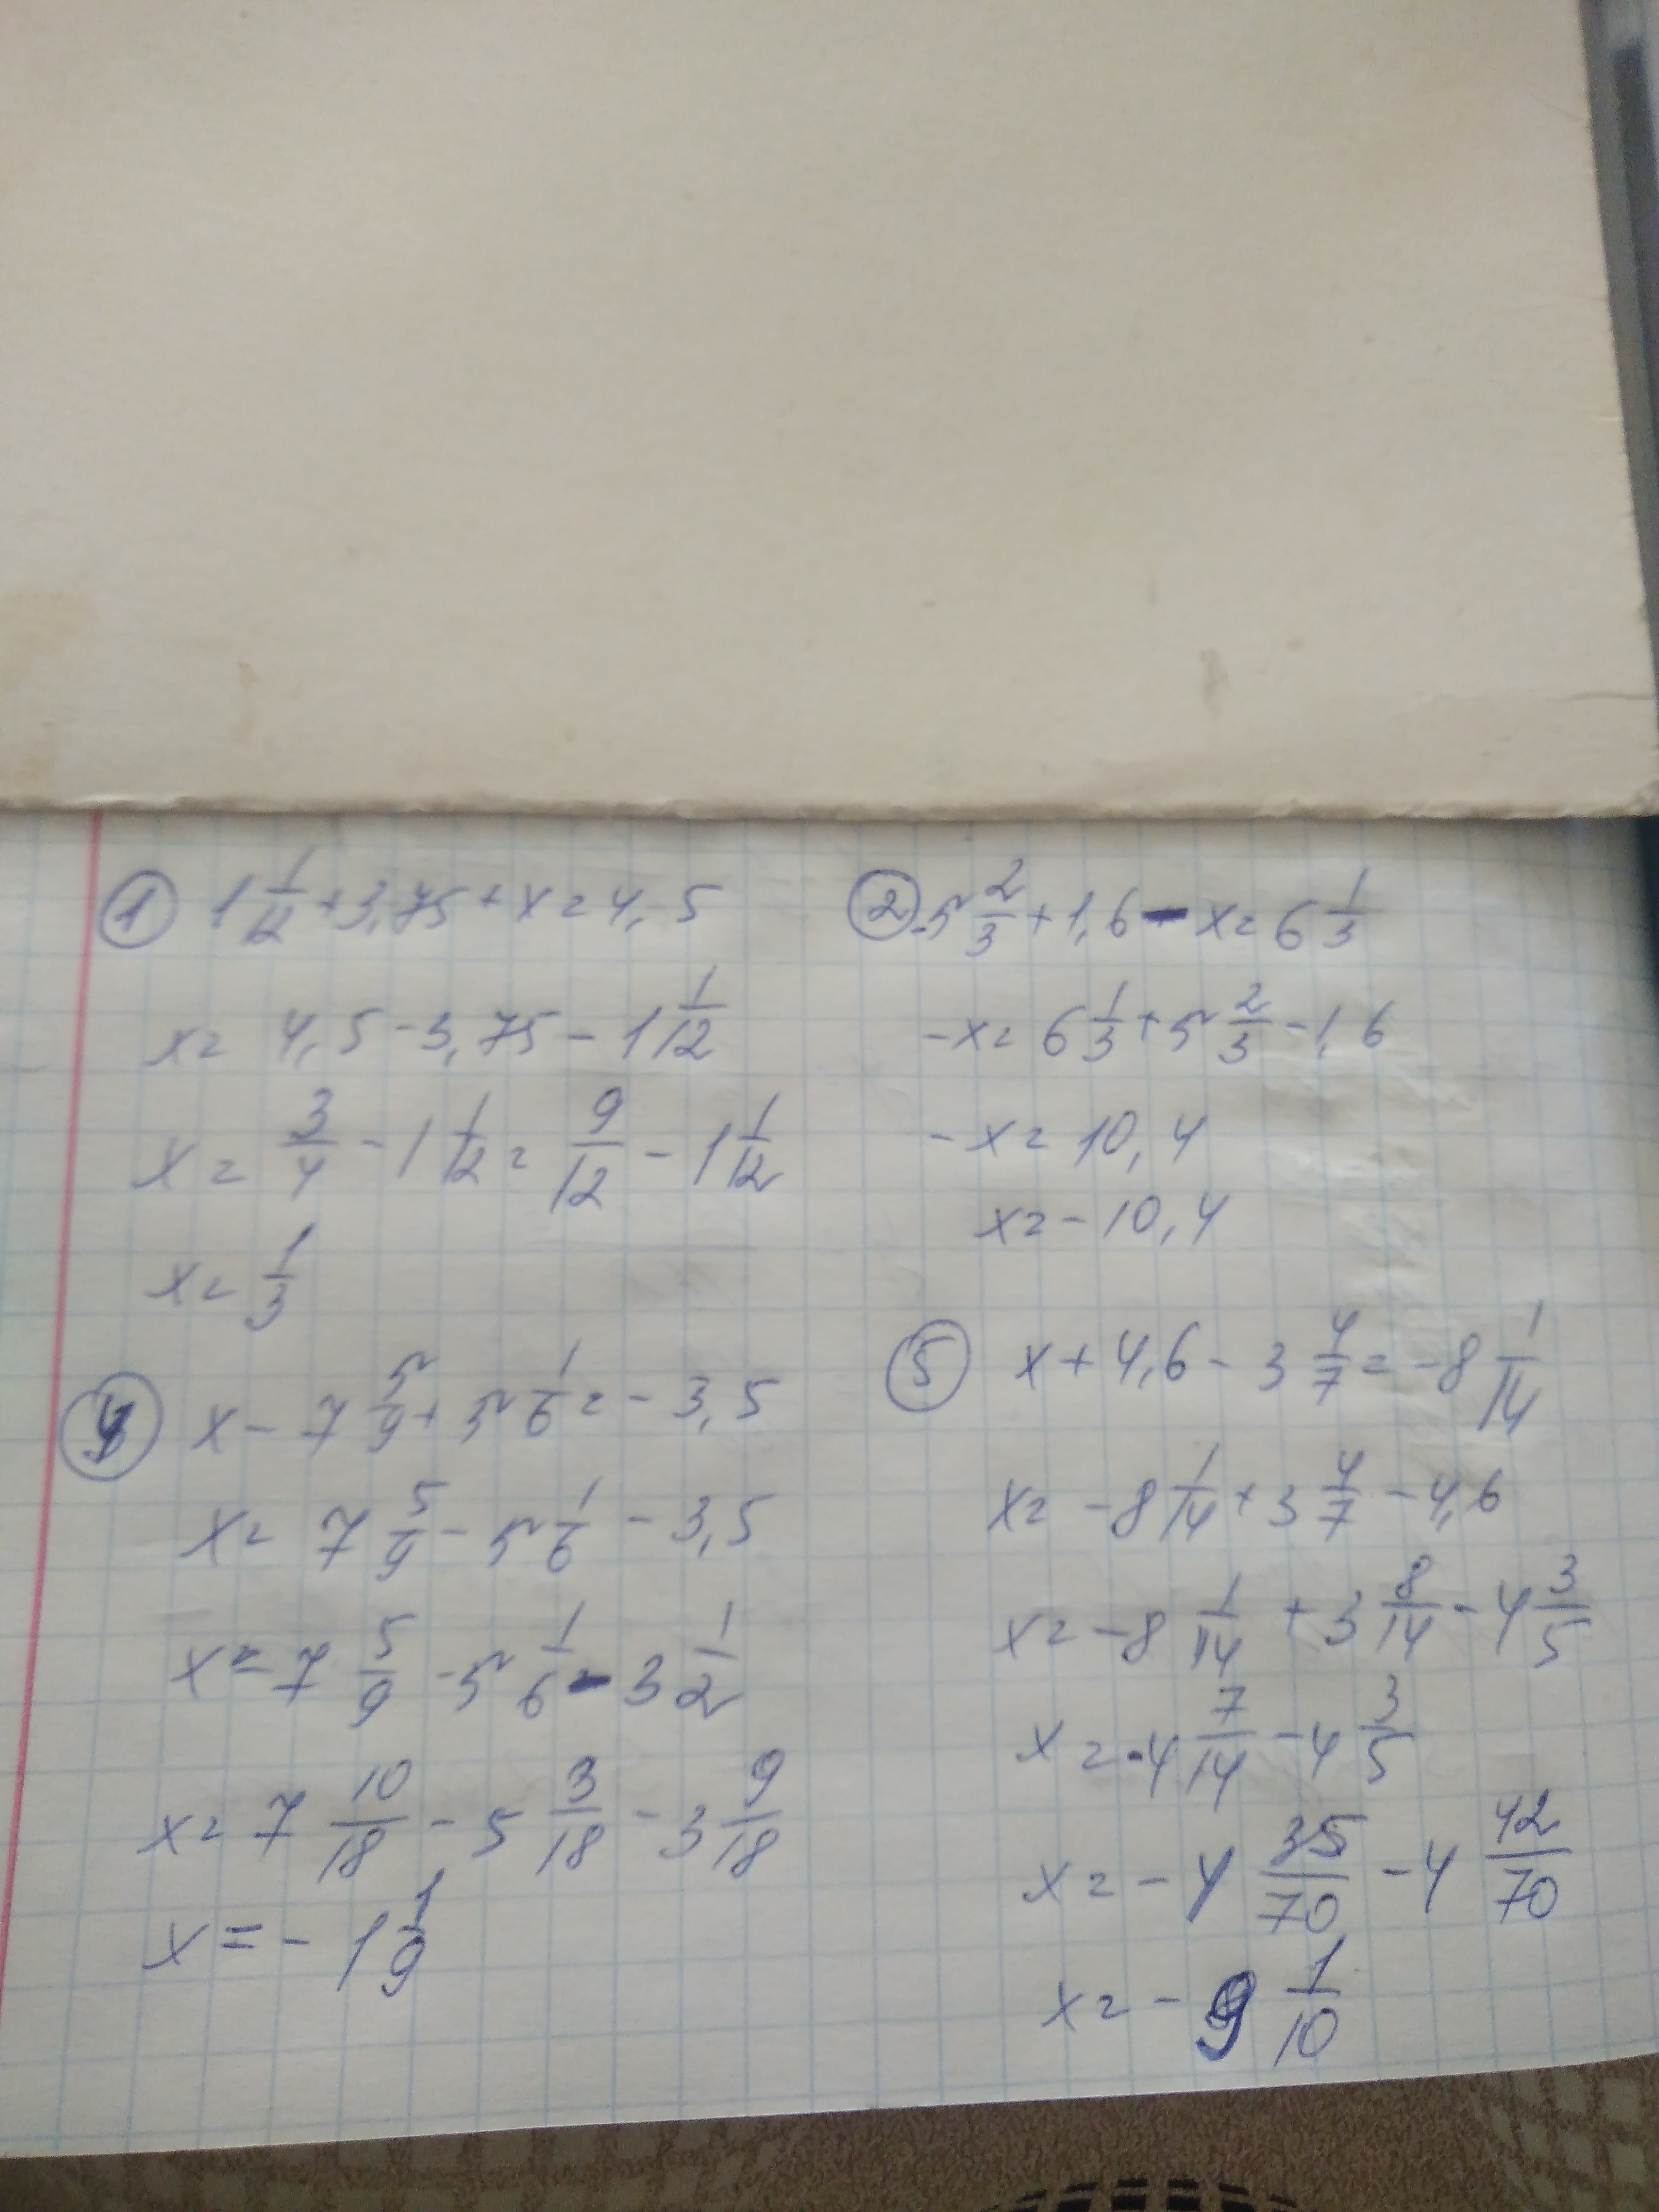 ① 1 1/12 + 3,75 + x = 4,5
x = 4,5 - 3,75 - 1 1/12
x = 3/4 - 1 1/12 = 9/12 - 1 1/12
x = 1/3
② -5 2/3 + 1,6 - x = 6 1/3
-x = 6 1/3 + 5 2/3 - 1,6
-x = 10,4
x = -10,4
④ x - 7 5/9 + 5 1/6 = -3,5
x = 7 5/9 - 5 1/6 - 3,5
x = 7 5/9 - 5 1/6 - 3 1/2
x = 7 10/18 - 5 3/18 - 3 9/18
x = -1 1/9
⑤ x + 4,6 - 3 4/7 = -8 1/14
x = -8 1/14 + 3 4/7 - 4,6
x = -8 1/14 + 3 8/14 - 4 3/5
x = -4 7/14 - 4 3/5
x = -4 35/70 - 4 42/70
x = -9 1/10